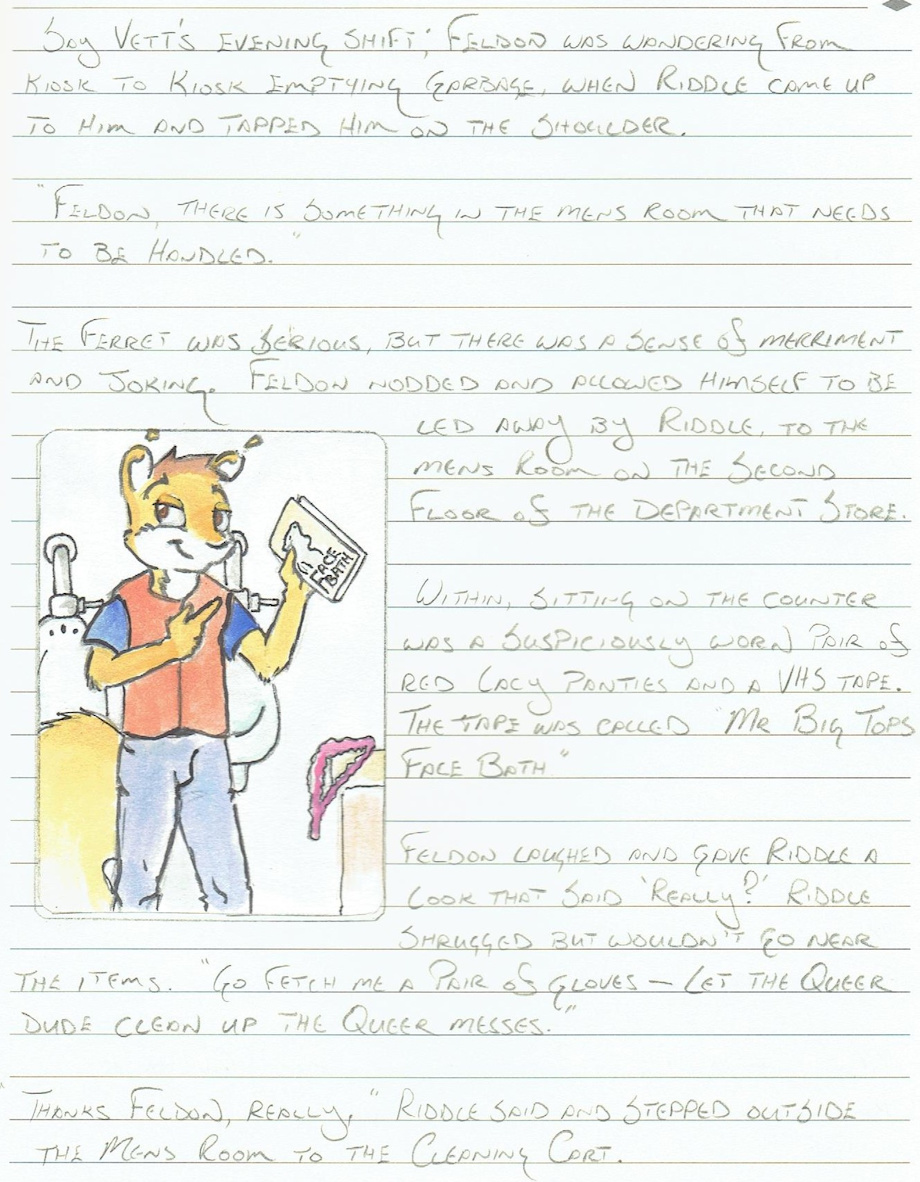 Say Vett's evening shift; Feldon was wandering from
kiosk to kiosk emptying garbage, when Riddle came up
to him and tapped him on the shoulder.
"Feldon, there is something in the mens room that needs
to be handled."
The ferret was serious, but there was a sense of merriment
and joking. Feldon nodded and allowed himself to be
led away by Riddle, to the
mens room on the second
floor of the department store.
FACE
BATH
Within, sitting on the counter
was a suspiciously worn pair of
red lacy panties and a VHS tape.
The tape was called "Mr Big Tops
Face Bath"
Feldon laughed and gave Riddle a
look that said 'Really?' Riddle
shrugged but wouldn't go near
the items. "Go fetch me a pair of gloves — let the queer
dude clean up the queer messes."
Thanks Feldon, really." Riddle said and stepped outside
the mens room to the cleaning cart.